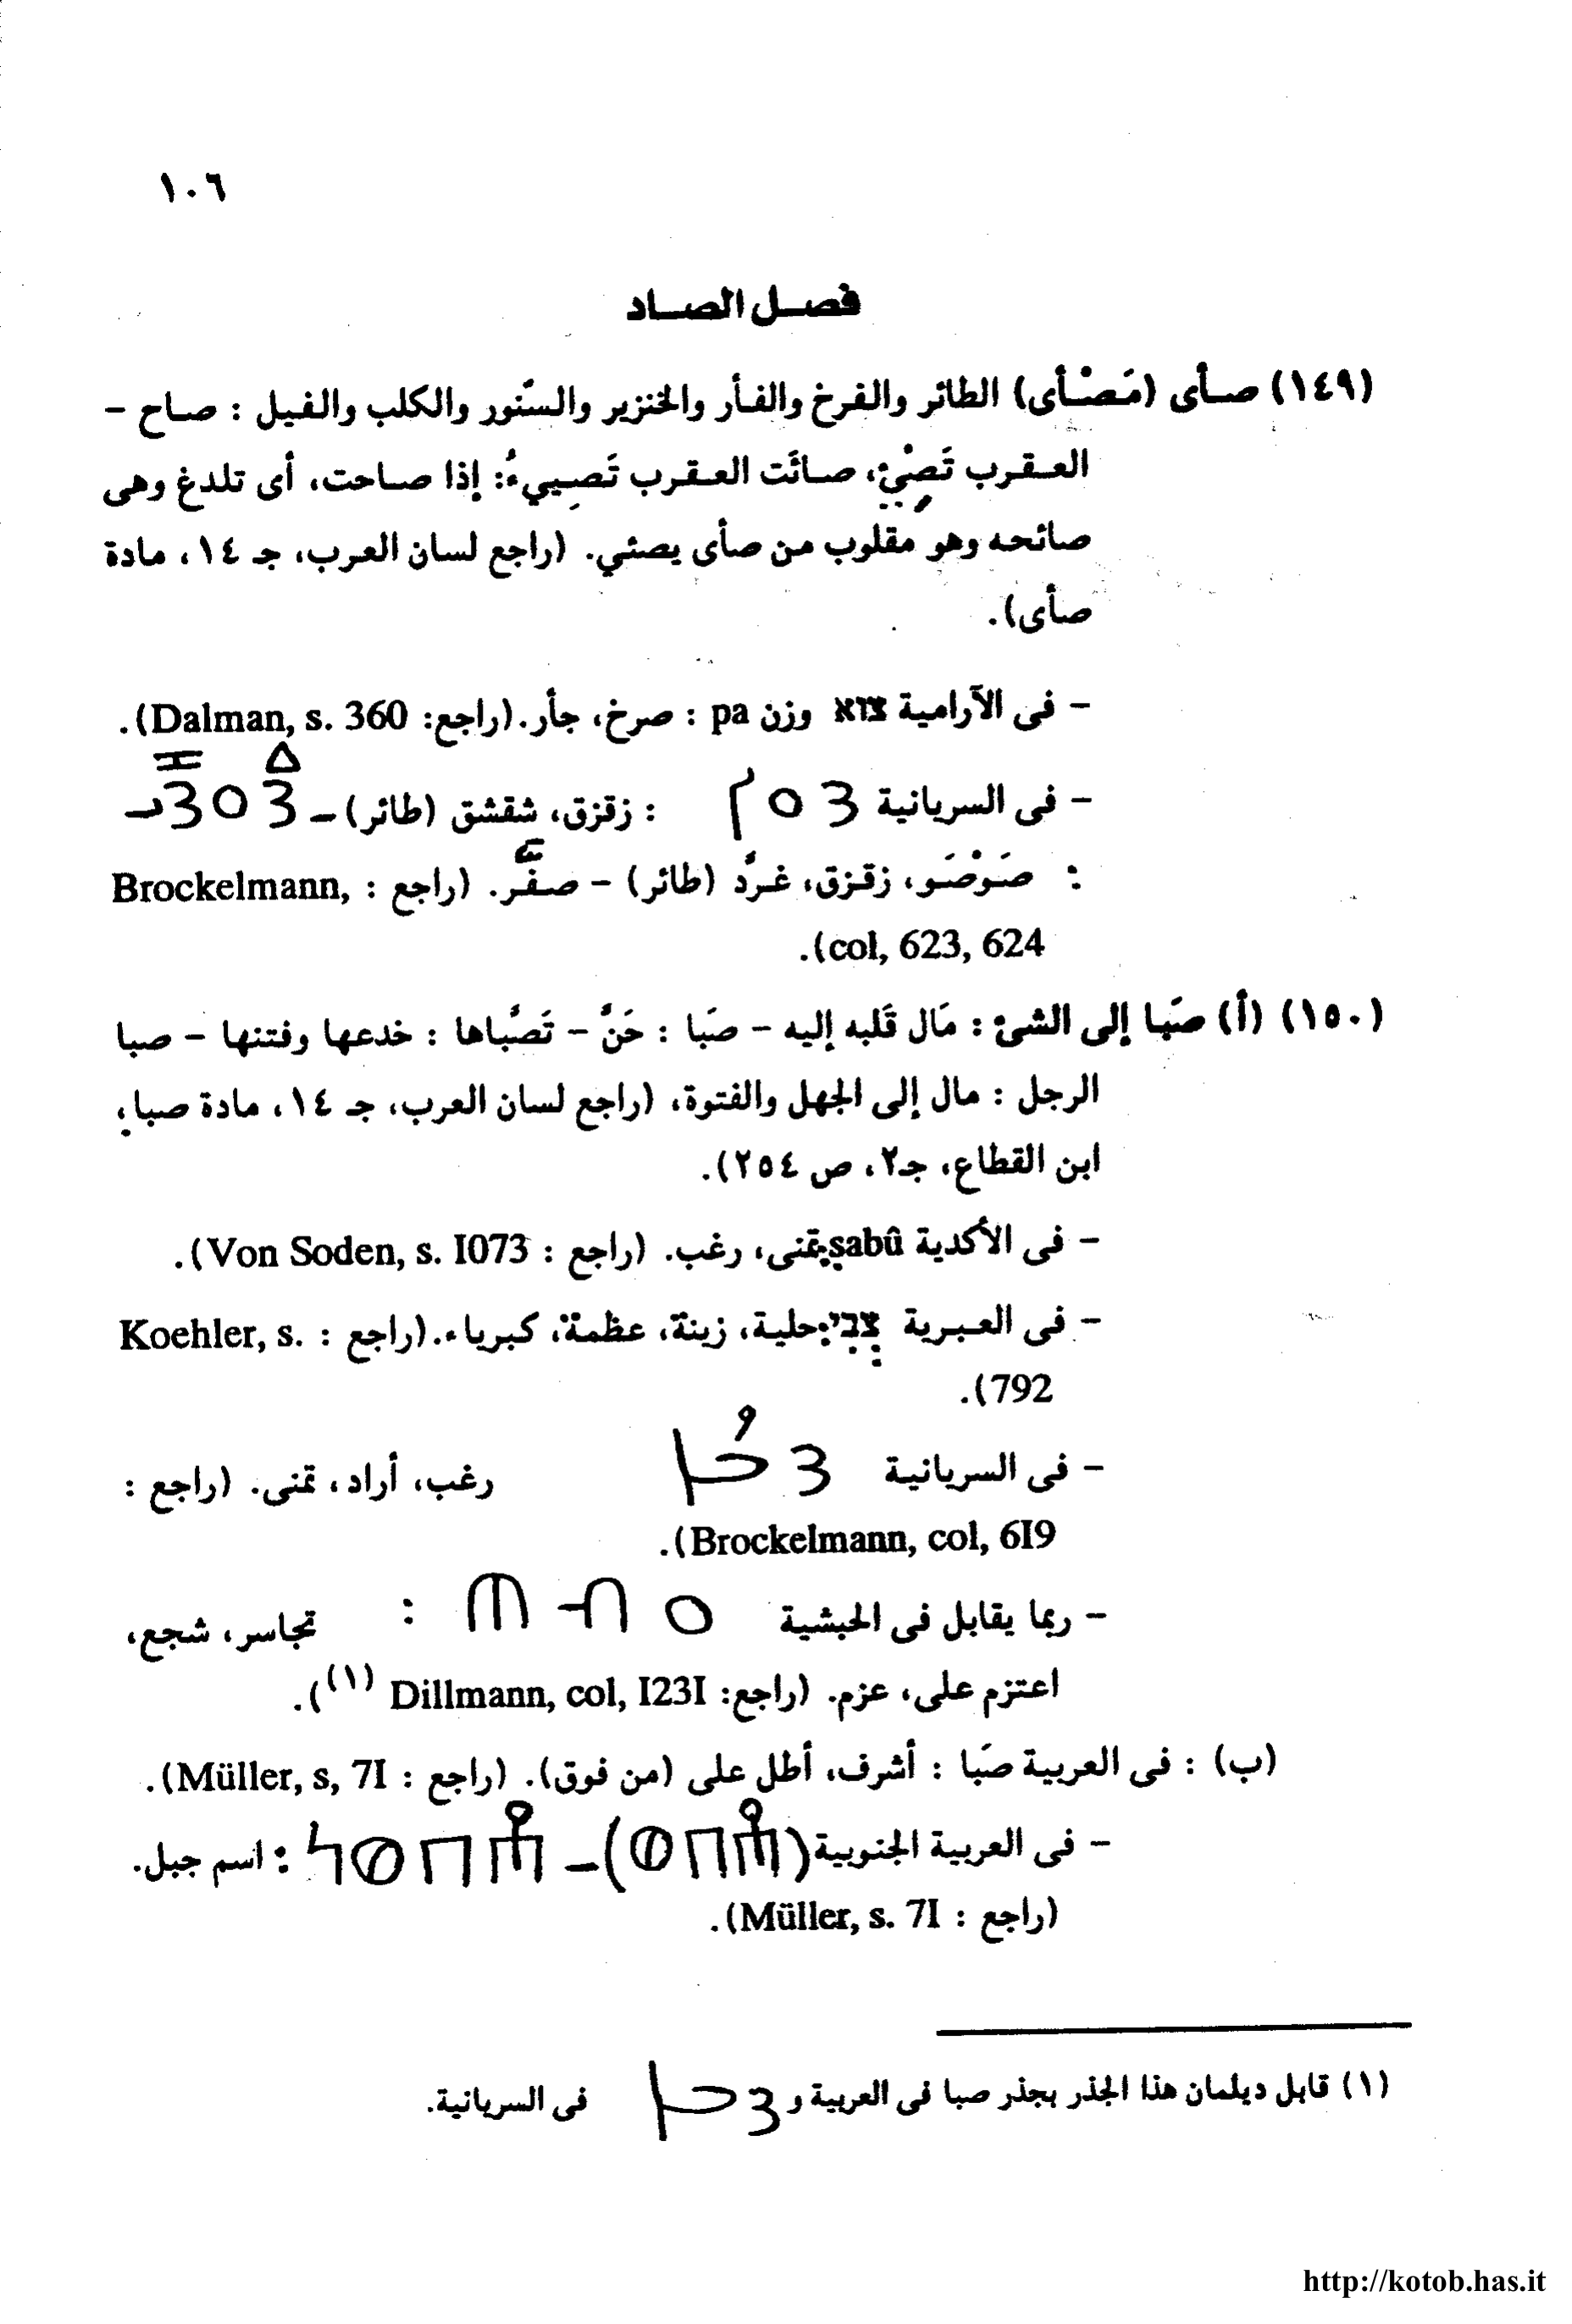 ١٠٦
فصل الصاد
(١٤٩) صأى (مَصْأى) الطائر والفرخ والفأر والخنزير والسنّور والكلب والفيل : صاح –
العقرب تَصِئ، صائَت العقرب تَصِييءُ: إذا صاحت، أى تلدغ وهى
صائحه وهو مقلوب من صأى يصئي. (راجع لسان العرب، جـ ١٤، مادة
صأى).
– فى الآرامية צוא وزن pa : صرخ، جأر.(راجع: Dalman, s. 360).
– فى السريانية : زقزق، شقشق (طائر) –
: صَوْصَو، زقزق، غرَّد (طائر) – صفَّر. (راجع : Brockelmann,
col, 623, 624).
(١٥٠) (أ) صَبا إلى الشئ : مَال قَلبه إليه – صَبا : حَنَّ – تَصَبَّاها : خدعها وفتنها – صبا
الرجل : مال إلى الجهل والفتوة، (راجع لسان العرب، جـ ١٤، مادة صبا،
ابن القطاع، جـ٢، ص ٢٥٤).
– فى الأكدية ṣabû: تمنى، رغب. (راجع : Von Soden, s. I073).
– فى العبرية צְבִי: حلية، زينة، عظمة، كبرياء.(راجع : Koehler, s.
792).
– فى السريانية رغب، أراد، تمنى. (راجع :
Brockelmann, col, 6I9).
– ربما يقابل فى الحبشية : تجاسر، شجع،
اعتزم على، عزم. (راجع: Dillmann, col, I23I (١)).
(ب) : فى العربية صَبا : أشرف، أطل على (من فوق). (راجع : Müller, s, 7I).
– فى العربية الجنوبية : اسم جبل.
(راجع : Müller, s. 7I).
(١) قابل ديلمان هذا الجذر بجذر صبا فى العربية و فى السريانية.
http://kotob.has.it